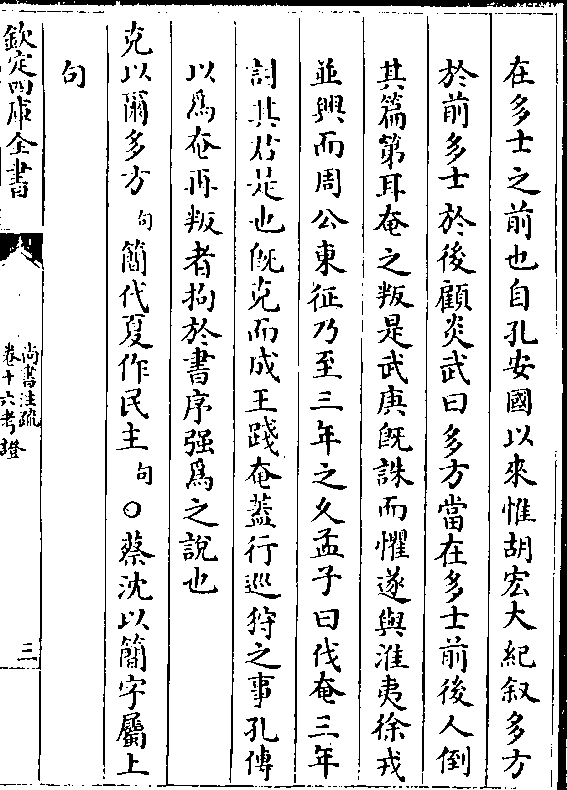 在多士之前也自孔安國以來惟胡宏大紀叙多方
於前多士於後顧炎武曰多方當在多士前後人倒
其篇第耳奄之叛是武庚既誅而懼遂與淮夷徐戎
並興而周公東征乃至三年之久孟子曰伐奄三年
討其君是也既克而成王踐奄蓋行巡狩之事孔傳
以為奄再叛者拘於書序强為之說也
克以爾多方句簡代夏作民主句○蔡沈以簡字屬上
句
欽定四庫全書
尚書注疏
卷十六考證
三